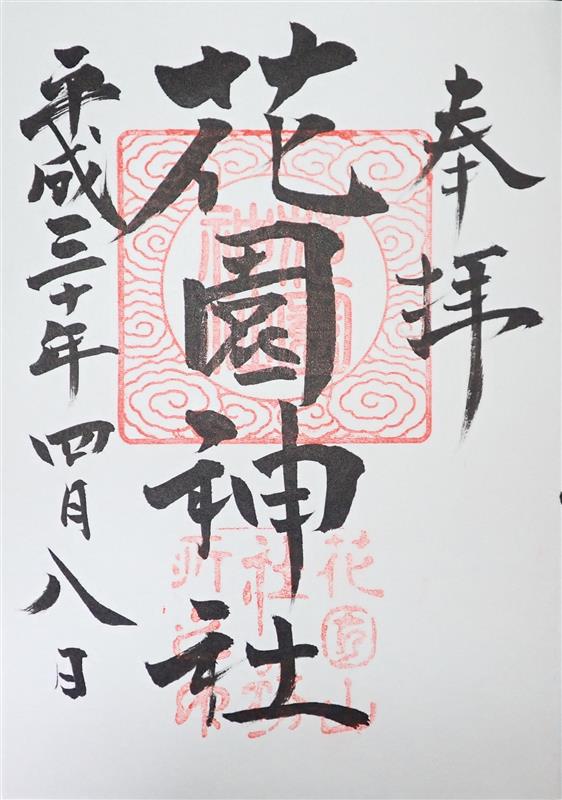 奉拝
花園神社
花園山
社務所
之印
平成三十年四月八日